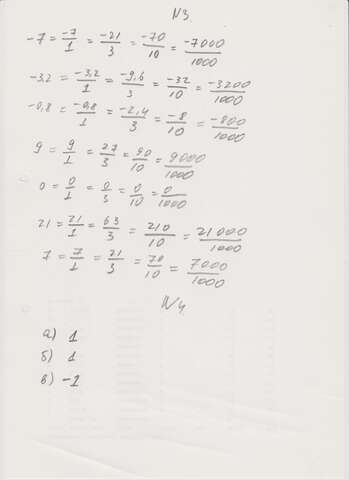 N3
-7 = -7/1 = -21/3 = -70/10 = -7000/1000
-3,2 = -3,2/1 = -9,6/3 = -32/10 = -3200/1000
-0,8 = -0,8/1 = -2,4/3 = -8/10 = -800/1000
9 = 9/1 = 27/3 = 90/10 = 9000/1000
0 = 0/1 = 0/3 = 0/10 = 0/1000
21 = 21/1 = 63/3 = 210/10 = 21000/1000
7 = 7/1 = 21/3 = 70/10 = 7000/1000
N4
а) 1
б) 1
в) -1